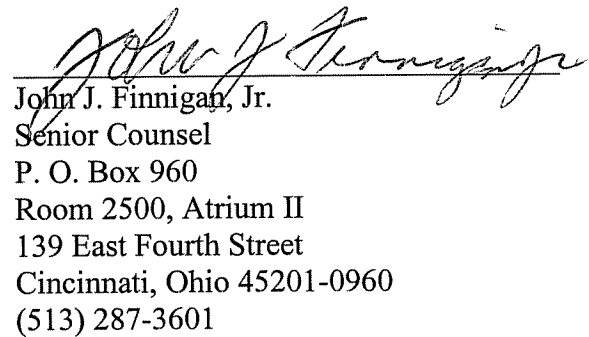 John J Finnigan Jr
John J. Finnigan, Jr.
Senior Counsel
P. O. Box 960
Room 2500, Atrium II
139 East Fourth Street
Cincinnati, Ohio 45201-0960
(513) 287-3601